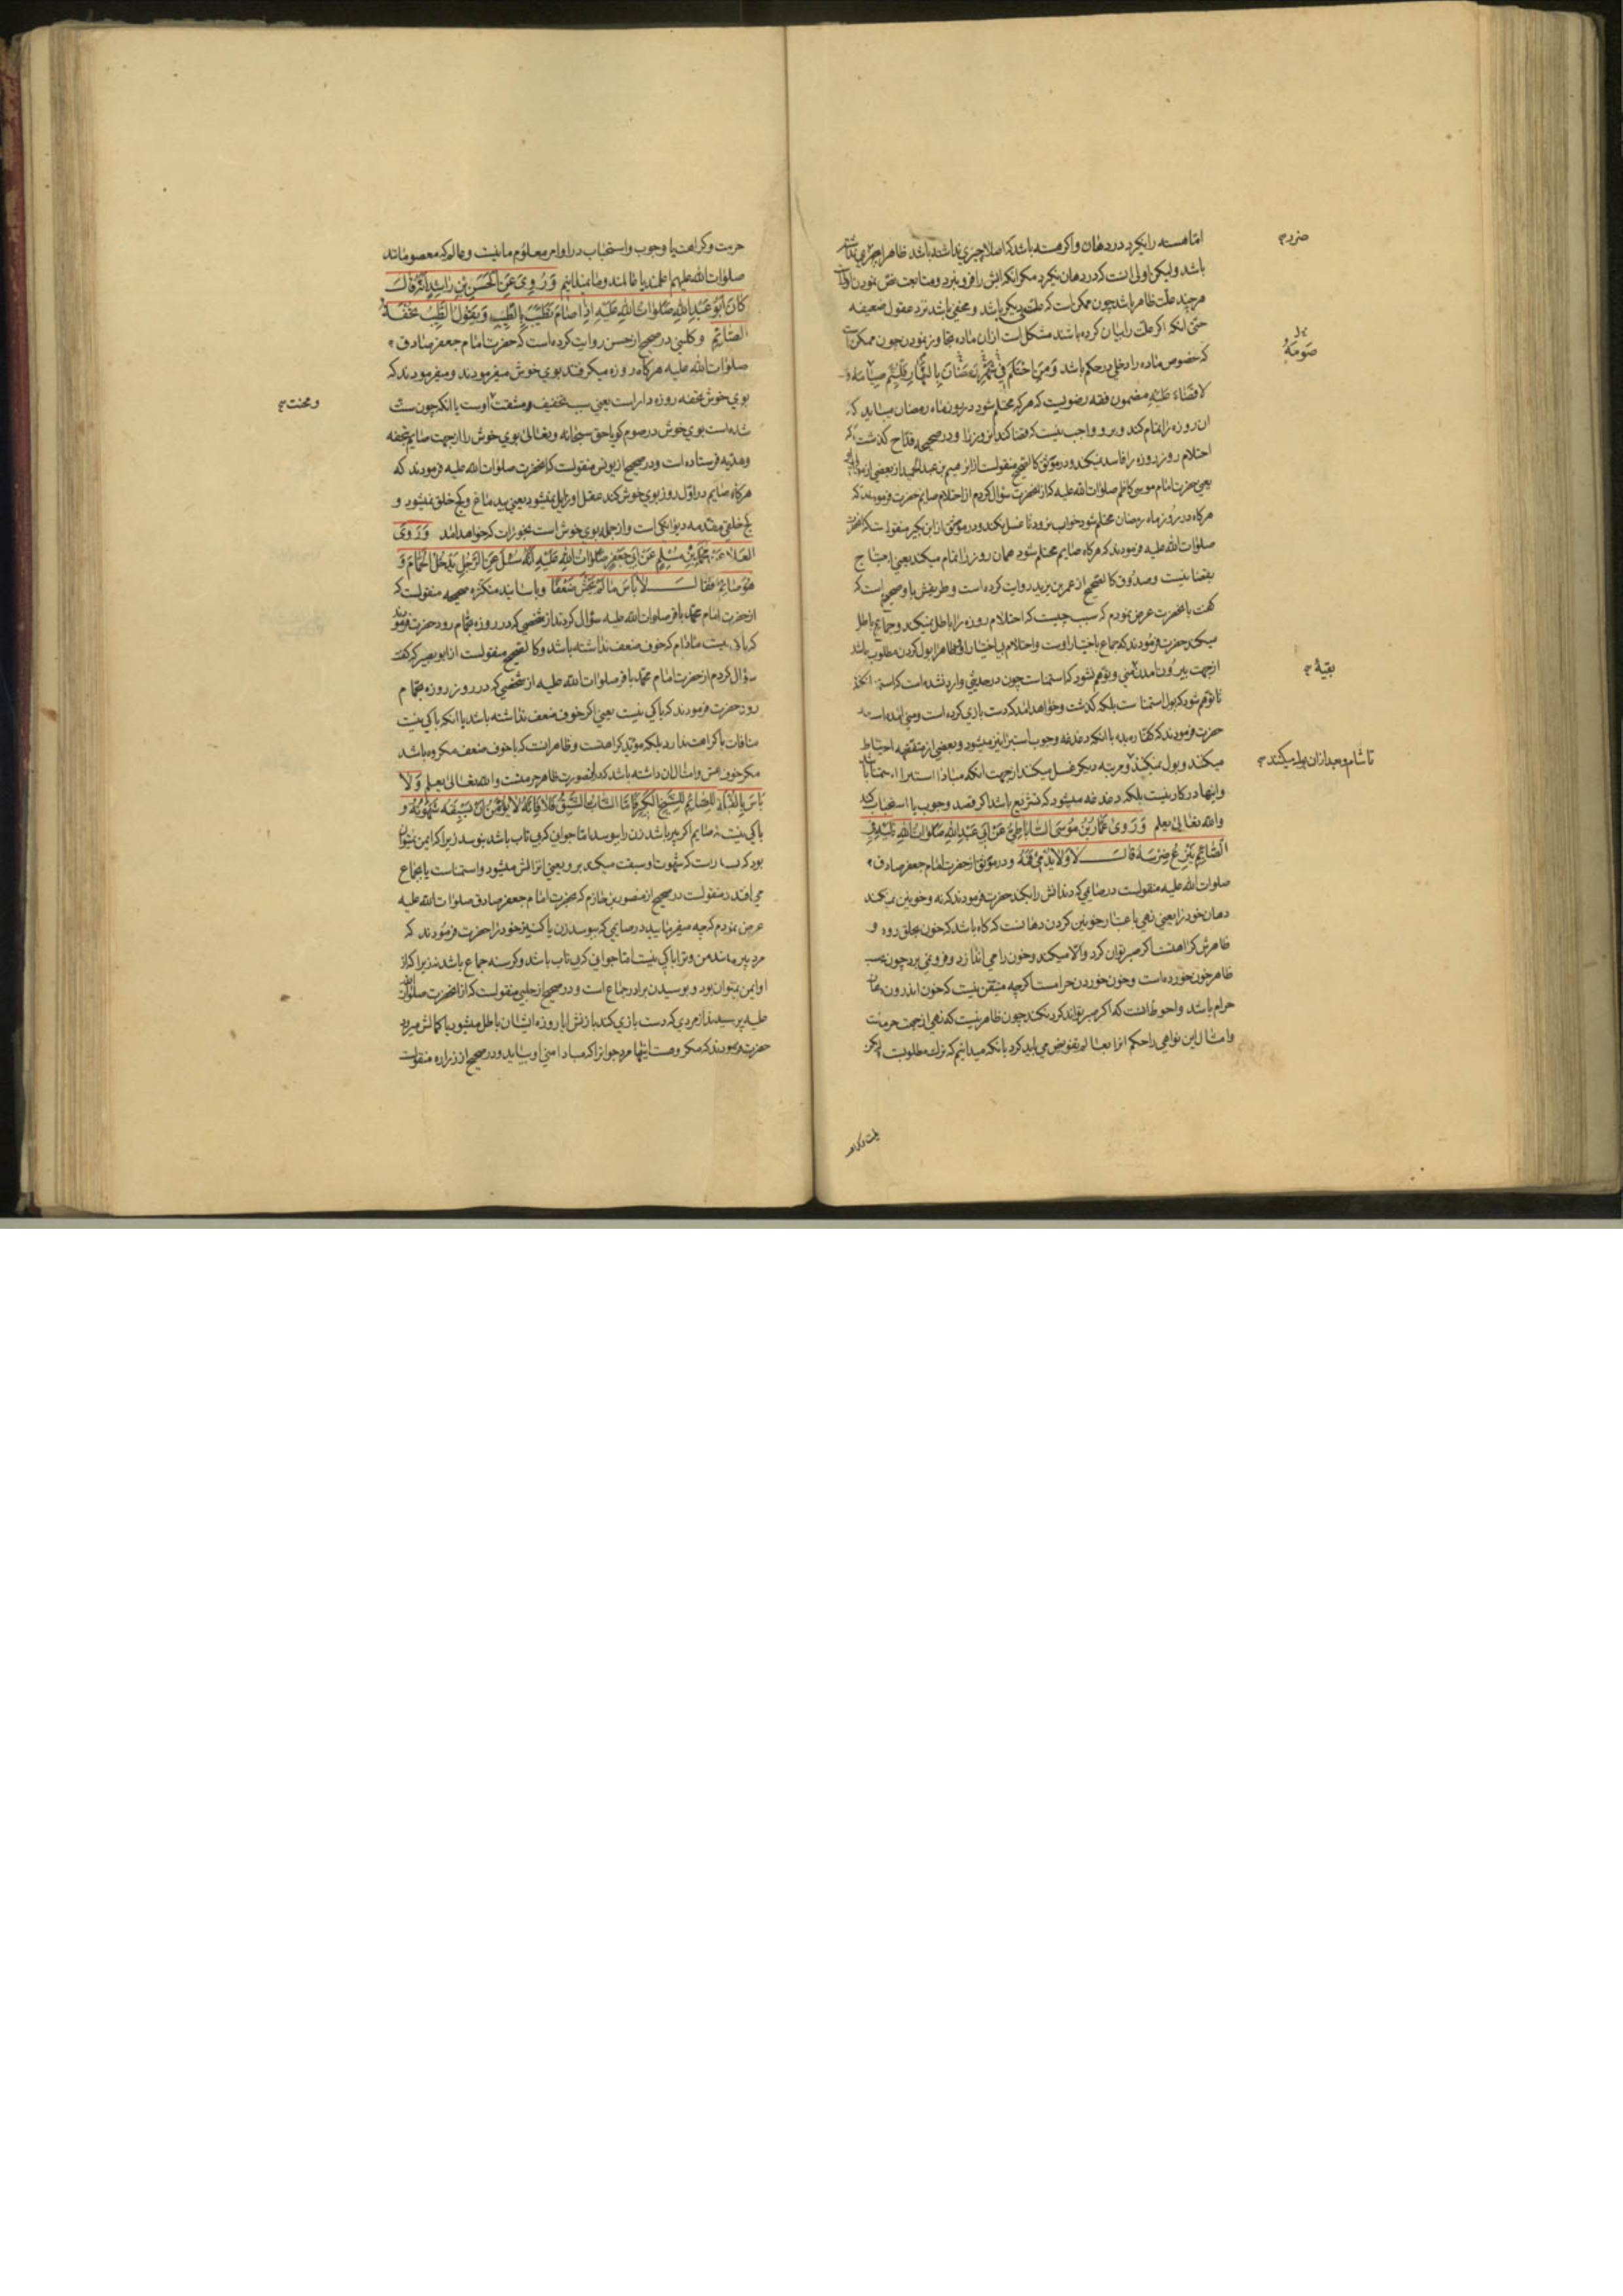 اما هسته را نگیرد در دهان و اگر هسته باشد که اصلا چیزی نداشته باشد ظاهرا چیزی نداشته
باشد ولیکن اولی انست که در دهان نگیرد مگر انکه ابش را فرو نبرد و متابعت نص نمودن اولی است
هر چند علت ظاهر باشد چون ممکن است که علت دیگر باشد و مخفی باشد نزد عقول ضعیفه
حتی انکه اگر علت را بیان کرده باشند مشکل است ازان ماده تجاوز نمودن چون ممکن است
که خصوص ماده را دخلی در حکم باشد وَمَنِ احْتَلَمَ فِي شَهْرِ رَمَضَانَ بِالنَّهَارِ فَلْيُتِمَّ صِيَامَهُ وَ
لا قَضَاءَ عَلَيْهِ مضمون فقه رضویست که هر که محتلم شود در روز ماه رمضان میباید که
ان روزه را تمام کند و برو واجب نیست که قضا کند انروز را و در صحیح قداح گذشت که
احتلام روز روزه را فاسد نمیکند و در موثق کالصحیح منقولست از ابرهیم بن عبد الحمید از بعضی از موالی او
یعنی حضرت امام موسی کاظم صلوات الله علیه که از انحضرت سؤال کردم از احتلام صایم حضرت فرمودند که
هرگاه در روز ماه رمضان محتلم شود خواب نرود تا غسل نکند و در موثق از ابن بکیر منقولست که انحضرت
صلوات الله علیه فرمودند که هرگاه صایم محتلم شود همان روز را تمام میکند یعنی احتیاج
بقضا نیست و صدوق کالصحیح از عمر بن یزید روایت کرده است و طریقش باو صحیح است که
گفت بانحضرت عرض نمودم که سبب چیست که احتلام روزه را باطل نمیکند و جماع باطل
میکند حضرت فرمودند که جماع باختیار اوست و احتلام بی اختیار او و ظاهرا بول کردن مطلوب باشد
ازجهت بیرون امدن منی و توهم نشود که استمناست چون در حدیثی وارد نشده است که استمنا کند
تا توهم شود که بول استمناست بلکه گذشت و خواهد امد که دست بازی کرده است و منی امده است
حضرت فرمودند که کفاره بده با انکه دغدغه وجوب استبرا نیز میشود و بعضی از متفقهه احتیاط
میکنند و بول نمیکنند و مرتبه دیگر غسل میکند ازجهت انکه مبادا استبرا
و اینها در کار نیست بلکه دغدغه میشود که تشریع باشد اگر قصد وجوب یا استحباب کند
والله تعالی یعلم وَرَوَى عَمَّارُ بْنُ مُوسَى السَّابَاطِيُّ عَنْ أَبِي عَبْدِ اللَّهِ صَلَوَاتُ اللَّهِ عَلَيْهِ فِي
الصَّائِمِ يَنْزِعُ ضِرْسَهُ قَالَ لَا وَلَا يُدْمِي فَمَهُ و در موثق از حضرت امام جعفر صادق
صلوات الله علیه منقولست در صایمی که دندانش را بکند حضرت فرمودند که نه و خونین نمیکند
دهان خود را یعنی نهی باعتبار خونین کردن دهانست که گاه باشد که خون بحلق رود و
ظاهرش کراهتست اگر صبر توان کرد و الا میکند و خون را می اندازد و فرو نمی برد چون
ظاهر خون خورده است و خون خوردن حرامست اگرچه متیقن نیست که خون اندرون دهان
حرام باشد و احوط انست که اگر صبر تواند کرد نکند چون ظاهر نیست که نهی ازجهت حرمت
و امثال این نواهی را حکم انرا بعالم تفویض می باید کرد بانکه میدانیم که ترک مطلوبست لیکن
ضرر
بدل
صَوْمَهُ
بقیه
تا شام و بعد ازان بول میکنند
حرمت و کراهت یا وجوب و استحباب در اوامر معلوم ما نیست و عالم که معصومانند
صلوات الله علیهم اعلمند یا عالمند و ما نمیدانیم وَرُوِيَ عَنِ الْحَسَنِ بْنِ رَاشِدٍ أَنَّهُ قَالَ
كَانَ أَبُو عَبْدِ اللَّهِ صَلَوَاتُ اللَّهِ عَلَيْهِ إِذَا صَامَ تَطَيَّبَ بِالطِّيبِ وَيَقُولُ الطِّيبُ تُحْفَةُ
الصَّائِمِ و کلینی در صحیح از حسن روایت کرده است که حضرت امام جعفر صادق
صلوات الله علیه هرگاه روزه میگرفتند بوی خوش میفرمودند و میفرمودند که
بوی خوش تحفه روزه دار است یعنی سبب تخفیف مشقت اوست یا انکه چون سنت
شده است بوی خوش در صوم گویا حق سبحانه و تعالی بوی خوش را ازجهت صایم بتحفه
و هدیه فرستاده است و در صحیح از یونس منقولست که انحضرت صلوات الله علیه فرمودند که
هرگاه صایم در اول روز بوی خوش کند عقل او زایل نمیشود یعنی بیدماغ و کج خلق نمیشود و
کج خلقی مقدمه دیوانگی است و ازجمله بوی خوش است بخورات که خواهد امد وَرَوَى
العَلاءُ عَنْ مُحَمَّدِ بْنِ مُسْلِمٍ عَنْ أَبِي جَعْفَرٍ صَلَوَاتُ اللَّهِ عَلَيْهِ أَنَّهُ سُئِلَ عَنِ الرَّجُلِ يَدْخُلُ الْحَمَّامَ وَ
هُوَ صَائِمٌ فَقَالَ لَا بَأْسَ مَا لَمْ يَخْشَ ضَعْفًا و باسانید متکثره صحیحه منقولست که
ازحضرت امام محمد باقر صلوات الله علیه سؤال کردند از شخصی که در روزه بحمام رود حضرت فرمودند
که باکی نیست مادام که خوف ضعف نداشته باشد و کالصحیح منقولست از ابو بصیر که گفت
سؤال کردم ازحضرت امام محمد باقر صلوات الله علیه از شخصی که در روز روزه بحمام
رود حضرت فرمودند که باکی نیست یعنی اگر خوف ضعف نداشته باشد با انکه باکی نیست
منافات با کراهت ندارد بلکه مؤید کراهتست و ظاهر انست که با خوف ضعف مکروه باشد
مگر خوف غش و امثال ان داشته باشد که درانصورت ظاهر حرمتست والله تعالی یعلم وَلَا
بَأْسَ بِالْقُبْلَةِ لِلصَّائِمِ لِلشَّيْخِ الْكَبِيرِ فَأَمَّا الشَّابُّ الشَّبِقُ فَلَا فَإِنَّهُ لَا يُؤْمَنُ أَنْ تَسْبِقَهُ شَهْوَتُهُ و
باکی نیست صایم اگر پیر باشد زن را ببوسد اما جوانی که بی تاب باشد نبوسد زیرا که ایمن نمیتوان
بود که شهوت او سبقت میکند برو یعنی انزالش میشود و استمناست یا بجماع
می افتد و منقولست در صحیح از منصور بن حازم که بحضرت امام جعفر صادق صلوات الله علیه
عرض نمودم که چه میفرمایید در صایمی که ببوسد زن یا کنیز خود را حضرت فرمودند که
مرد پیر مانند من و ترا باکی نیست اما جوانی که بی تاب باشد و گرسنه جماع باشد نه زیرا که از
او ایمن نمیتوان بود و بوسیدن برادر جماع است و در صحیح از حلبی منقولست که از انحضرت صلوات الله
علیه پرسیدند از مردی که دست بازی کند با زنش ایا روزه ایشان باطل میشود یا کمالش میرود
حضرت فرمودند که مکروهست اینها مرد جوانرا که مبادا منی او بیاید و در صحیح از زراره منقولست
و محنت